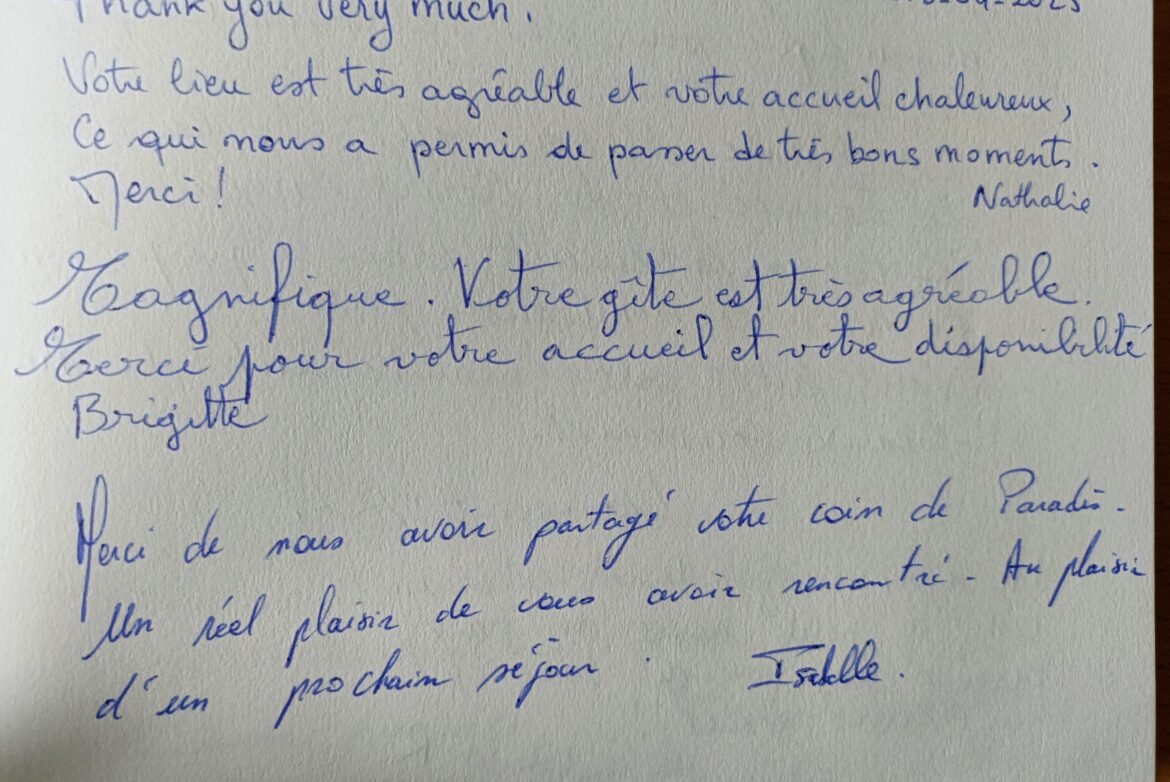 Thank you very much.
Votre lieu est très agréable et votre accueil chaleureux,
Ce qui nous a permis de passer de très bons moments.
Merci !
Nathalie
Magnifique. Votre gîte est très agréable.
Merci pour votre accueil et votre disponibilité
Brigitte
Merci de nous avoir partagé votre coin de Paradis.
Un réel plaisir de vous avoir rencontré. Au plaisir
d'un prochain séjour. Isabelle.